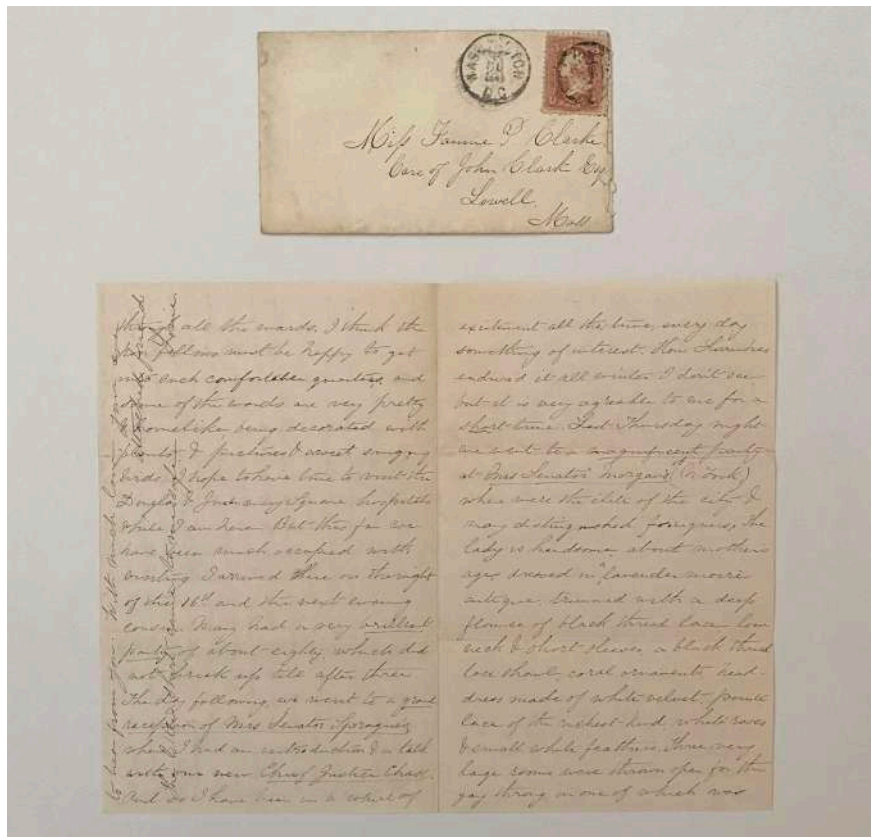 WASHINGTON
D.C.
Miss Fannie P Clarke
Care of John Clark Esq
Lowell,
Mass.
all the wards. I think the
fellows must be happy to get
into such comfortable quarters, and
some of the wards are very pretty
& homelike being decorated with
plants & pictures & sweet singing
birds. I hope to have time to visit the
Douglas & Square hospitals
while I am here. But thus far we
have been much occupied with
visiting. I arrived there on the night
of the 16th and the next evening
cousin Mary had a very brilliant
party of about eighty, which did
not break up till after three.
The day following, we went to a grand
reception of Mrs Senator Sprague's
where I had an introduction & a talk
with our new Chief Justice Chase.
And so I have been in a whirl of
to hear from you. With much love
excitement all the time, every day
something of interest. How
endured it all winter I don't see
but it is very agreeable to me for a
short time. Last Thursday night
we went to a magnificent party
at Mrs Senator Morgan's (N. York)
where were the elite of the city &
many distinguished foreigners. The
lady is handsome, about mother's
age, dressed in lavender
antique trimmed with a deep
flounce of black thread lace, low
neck & short sleeves, a black thread
lace shawl, coral ornaments, head-
dress made of white velvet,
lace of the richest kind, white roses
& small white feathers. Three very
large rooms were thrown open for the
gay throng in one of which was